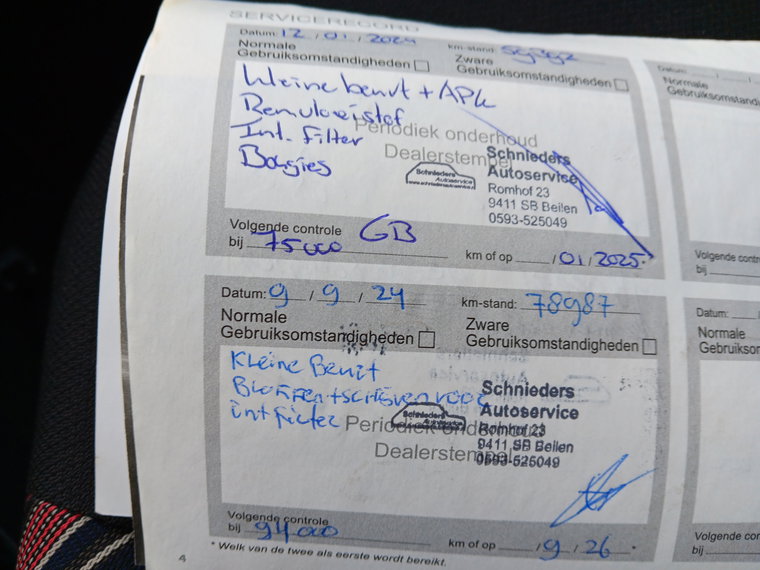 SERVICERECORD
Datum: 12 / 01 / 2024 km-stand:
Normale Gebruiksomstandigheden
Zware Gebruiksomstandigheden
Kleine beurt + APK
Remvloeistof
Int. Filter
Bougies
Periodiek onderhoud
Dealerstempel
Schnieders
Autoservice
www.schniedersautoservice.nl
Schnieders
Autoservice
Romhof 23
9411 SB Beilen
0593-525049
Volgende controle GB
bij 75000 km of op / 01 / 2025 *
Datum: 9 / 9 / 24 km-stand: 78987
Normale Gebruiksomstandigheden
Zware Gebruiksomstandigheden
Kleine Beurt
Blokken + schijven voor
int filter
Periodiek onderhoud
Dealerstempel
Schnieders
Autoservice
Schnieders
Autoservice
Romhof 23
9411 SB Beilen
0593-525049
Volgende controle
bij 94000 km of op / 9 / 26 *
4
* Welk van de twee als eerste wordt bereikt.
Datum:
Normale
Gebruiksomstandig
Volgende contro
bij
Datum:
Normale
Gebruiksomst
Volgende contro
bij